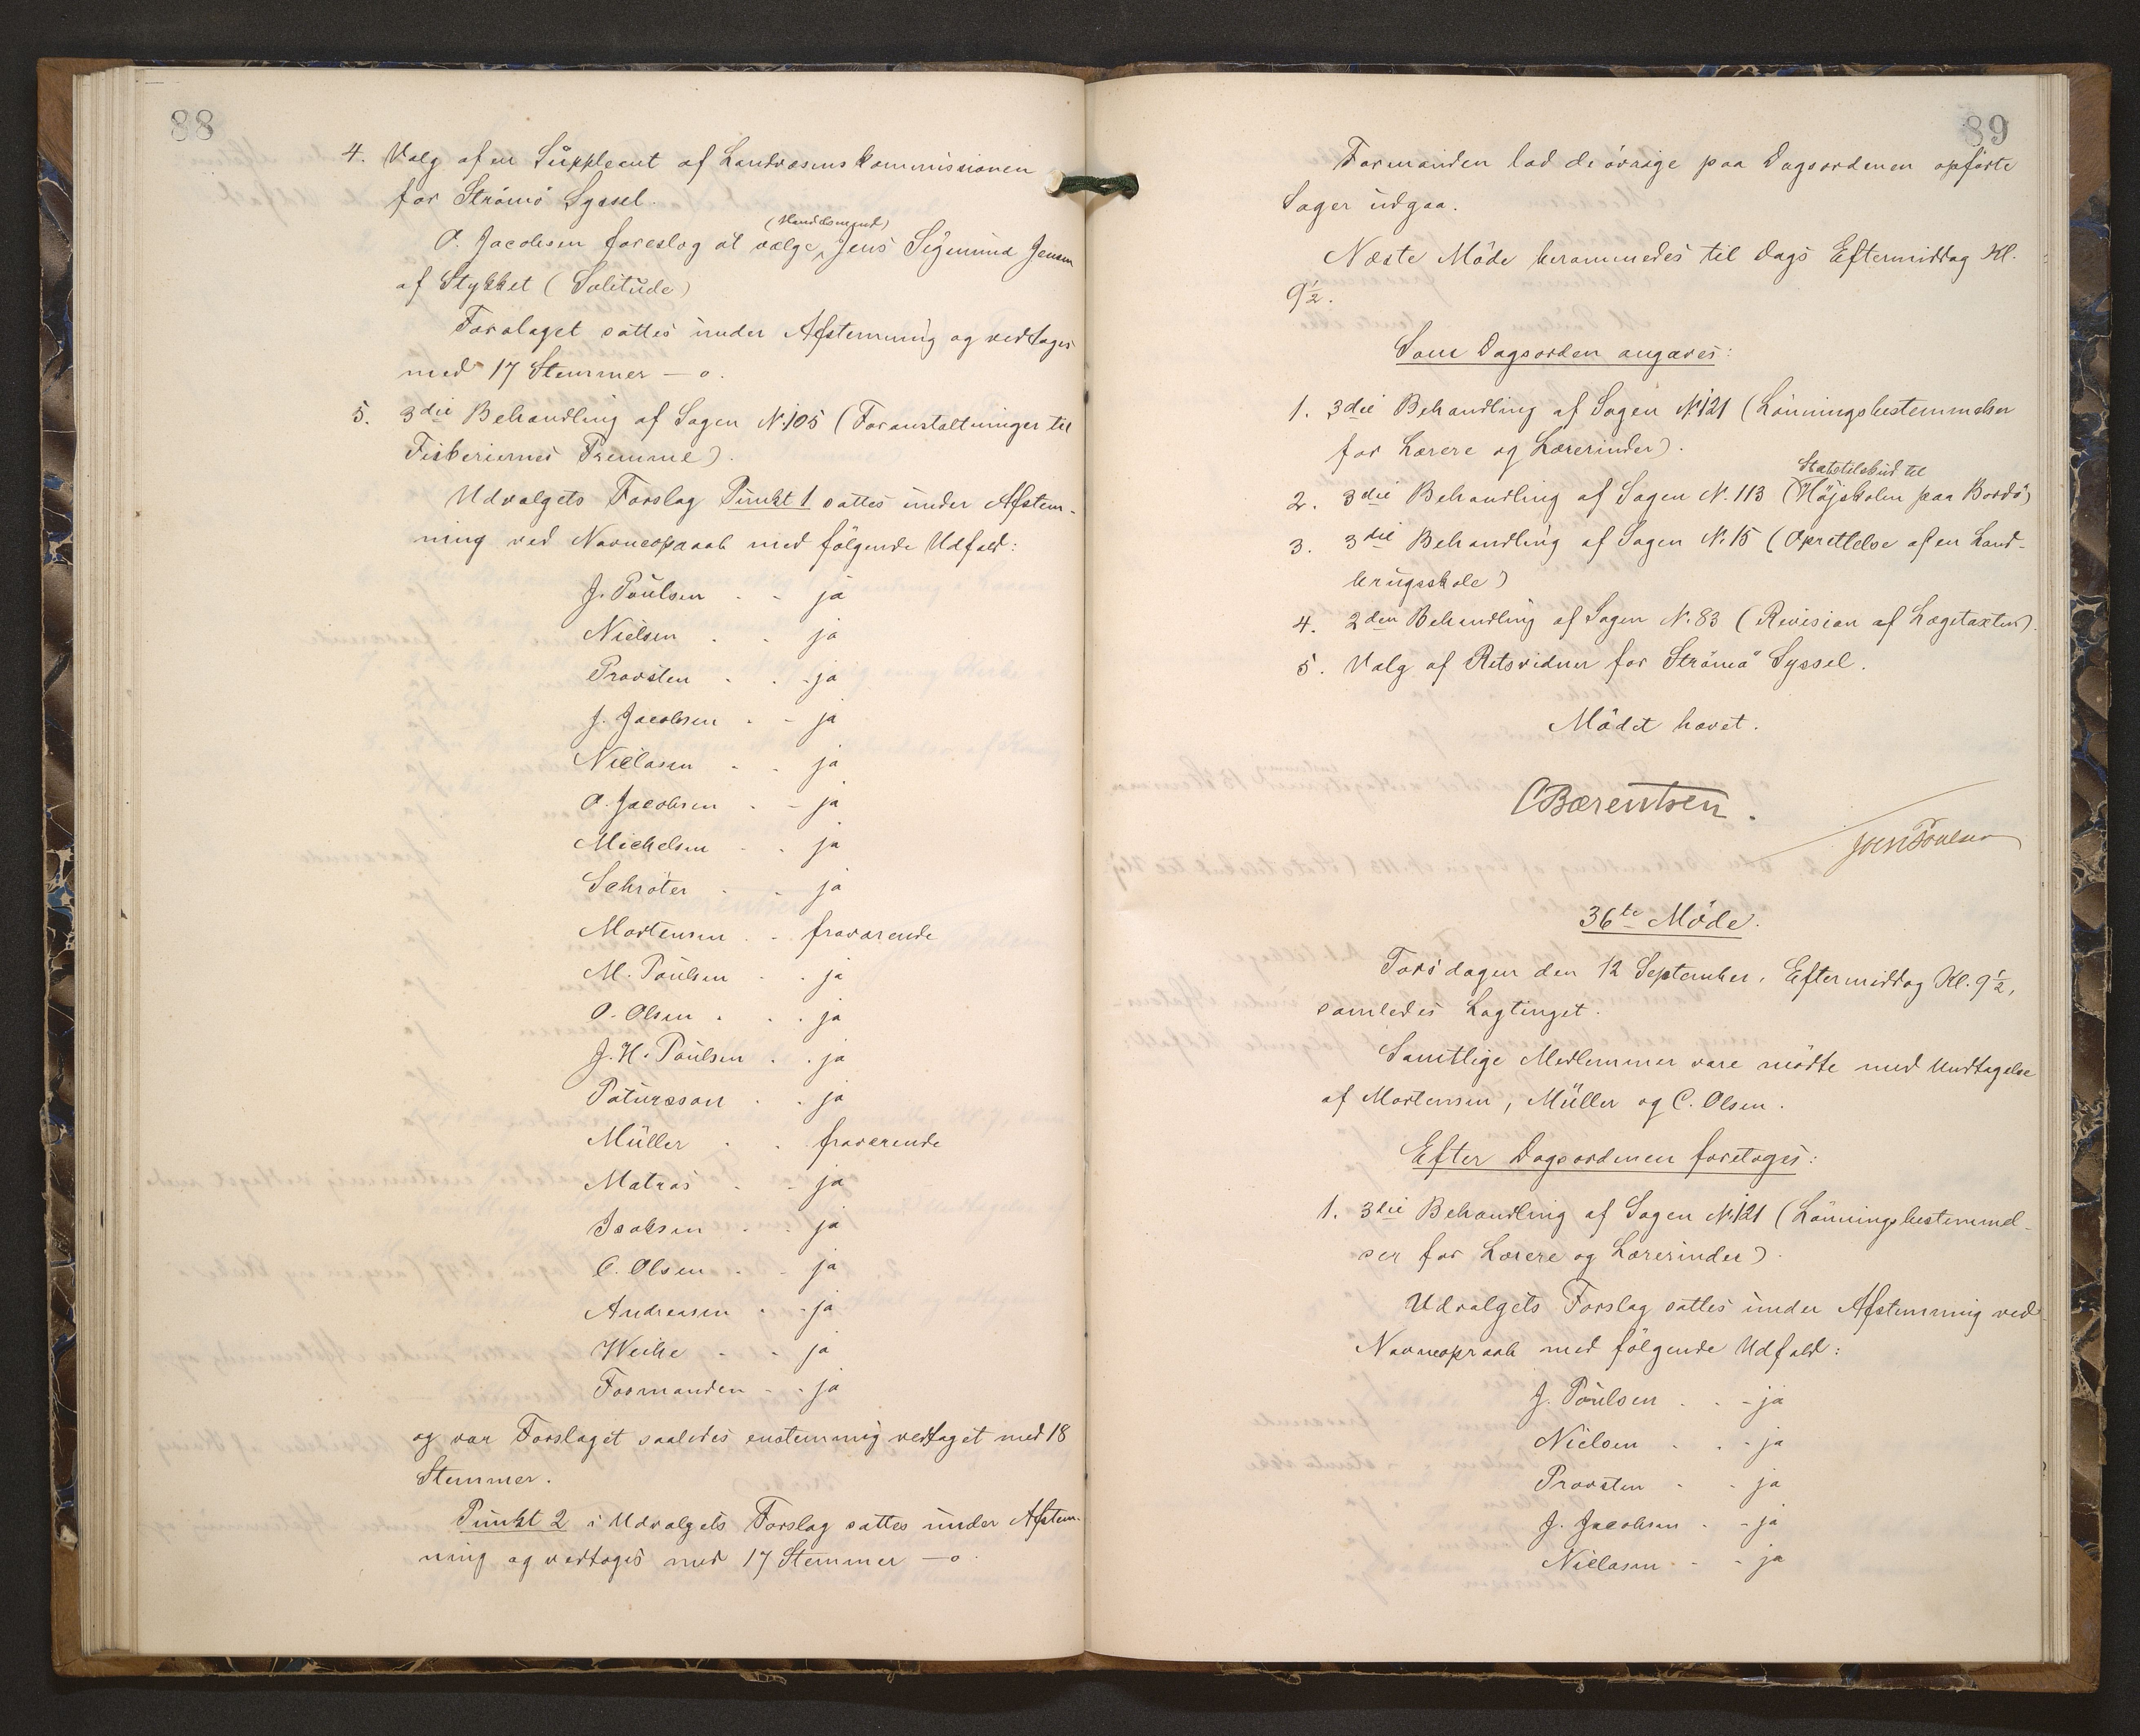 88
4. Valg af en Suppleant af Landvæsenskommissionen
for Strömö Syssel.
(Handelsmand)
O. Jacobsen foreslog at vælge Jens Sigmund Jensen
af Stykket (Solitude)
Forslaget sattes under Afstemning og vedtoges
med 17 Stemmer — o.
5. 3die Behandling af Sagen N. 105 (Foranstaltninger til
Fiskeriernes Fremme).
Udvalgets Forslag Punkt 1 sattes under Afstem-
ning ved Navneopraab med fölgende Udfald:
J. Poulsen - - ja
Nielsen - - ja
Provsten - - ja
J. Jacobsen - - ja
Niclasen - - ja
O. Jacobsen - - ja
Michelsen - - ja
Schröter - - ja
Mortensen - - fraværende
M. Poulsen - - ja
O. Olsen - - ja
J. H. Poulsen - - ja
Patursson - - ja
Müller - - fraværende
Matras - - ja
Isaksen - - ja
C. Olsen - - ja
Andreasen - - ja
Weihe - - ja
Formanden - - ja
og var Forslaget saaledes enstemmig vedtaget med 18
Stemmer.
Punkt 2 i Udvalgets Forslag sattes under Afstem-
ning og vedtoges med 17 Stemmer — o
89
Formanden lod de övrige paa Dagsordenen opförte
Sager udgaa.
Næste Möde berammedes til Dags Eftermiddag Kl.
9½.
Som Dagsorden angaves:
1. 3die Behandling af Sagen N. 121 (Lönningsbestemmelser
for Lærere og Lærerinder).
Statstilskud til
2. 3die Behandling af Sagen N. 113 (Höjskolen paa Bordö)
3. 3die Behandling af Sagen N. 15 (Oprettelse af en Land-
brugsskole)
4. 2den Behandling af Sagen N. 83 (Revision af Lægetaxten).
5. Valg af Retsvidner for Strömö Syssel.
Mödet hævet.
CBærentsen.
36te Möde.
Torsdagen den 12 September, Eftermiddag Kl. 9½,
samledes Lagtinget.
Samtlige Medlemmer vare mödte med Undtagelse
af Mortensen, Müller og C. Olsen.
Efter Dagsordenen foretoges:
1. 3die Behandling af Sagen N. 121 (Lönningsbestemmel-
ser for Lærere og Lærerinder).
Udvalgets Forslag sattes under Afstemning ved
Navneopraab med fölgende Udfald:
J. Poulsen - - ja
Nielsen - - ja
Provsten - - ja
J. Jacobsen - - ja
Niclasen - - ja